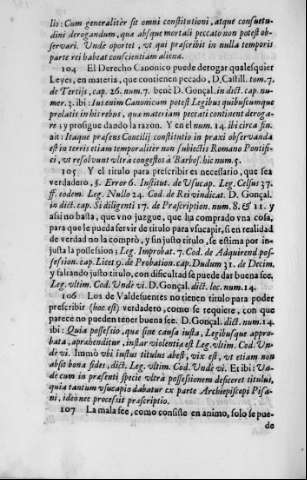 lis: Cum generalitèr sit omni constitutioni, atque consuetu-
dini derogandum, qua absque mortali peccato non potest ob-
servari. Unde oportet, vt qui præscribit in nulla temporis
parte rei habeat conscientiam alienæ.
104 El Derecho Canonico puede derogar qualesquier
Leyes, en materia, que contienen pecado, D. Castill. tom. 7.
de Tertijs, cap. 26. num. 7. benè D. Gonçal. in dict. cap. nu-
mer. 3. ibi: Ius enim Canonicum potest Legibus quibuscumque
prolatis in his rebus, qua materiam peccati continent deroga-
re; y prosigue dando la razon. Y en el num. 14. ibi circa fin.
ait: Itaque præsens Concilij constitutio in praxi observanda
est in terris etiam temporaliter non subiectis Romano Pontifi-
ci, vt resolvunt vltra congestos à Barbos. hic num. 5.
105 Y el titulo para prescribir es necessario, que sea
verdadero, §. Error 6. Institut. de Vsucap. Leg. Celsus 27.
ff. eodem. Leg. Nullo 24. Cod. de Rei vindicat. D. Gonçal.
in dict. cap. Si diligenti 17. de Præscription. num. 8. & 11. y
asi no basta, que vno juzgue, que ha comprado vna cosa,
para que le pueda servir de titulo para vsucapir, si en realidad
de verdad no la comprò, y sin justo titulo, se estima por in-
justa la possession; Leg. Improbat. 7. Cod. de Adquirend pos-
session. cap. Licet 9. de Probation. cap. Dudum 31. de Decim.
y faltando justo titulo, con dificultad se puede dar buena fee.
Leg. vltim. Cod. Unde vi. D. Gonçal. dict. loc. num. 14.
106 Los de Valdefuentes no tienen titulo para poder
prescribir (hoc est) verdadero, como se requiere, con que
parece no pueden tener buena fee. D. Gonçal. dict. num. 14.
ibi: Quia possessio, qua sine causa iusta, Legibusque appro-
bata, apræhenditur, instar violentia est Leg. vltim. Cod. Vn-
de vi. Immò vbi iustus titulus abest, vix est, vt etiam non
absit bona fides, dict. Leg. vltim. Cod. Unde vi. Et ibi: Va-
de cum in præsenti specie vltrà possessionem deficeret titulus,
quia tantum vsucapio dabatur ex parte Archiepiscopi Pisa-
ni, ideò nec processit præscriptio.
107 La mala fee, como consiste en animo, solo se pue-
de